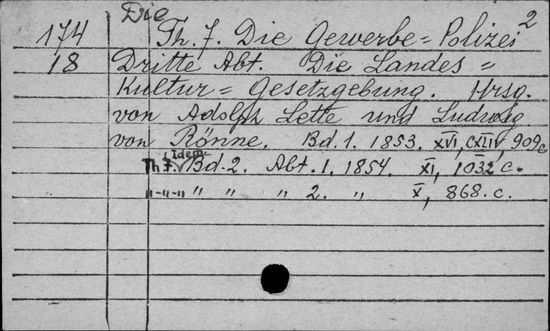 Die 2
174 Th. 7. Die Gewerbe=Polizei
18 Dritte Abt. Die Landes=
Kultur=Gesetzgebung. Hrsg.
von Adolph Lette und Ludwig
von Rönne. Bd. 1. 1853. XVI, CXLIV, 909 c
Th. 7. Idem Bd. 2. Abt. 1. 1854. XI, 1032 c.
"-"-" " " " 2. " X, 868. c.